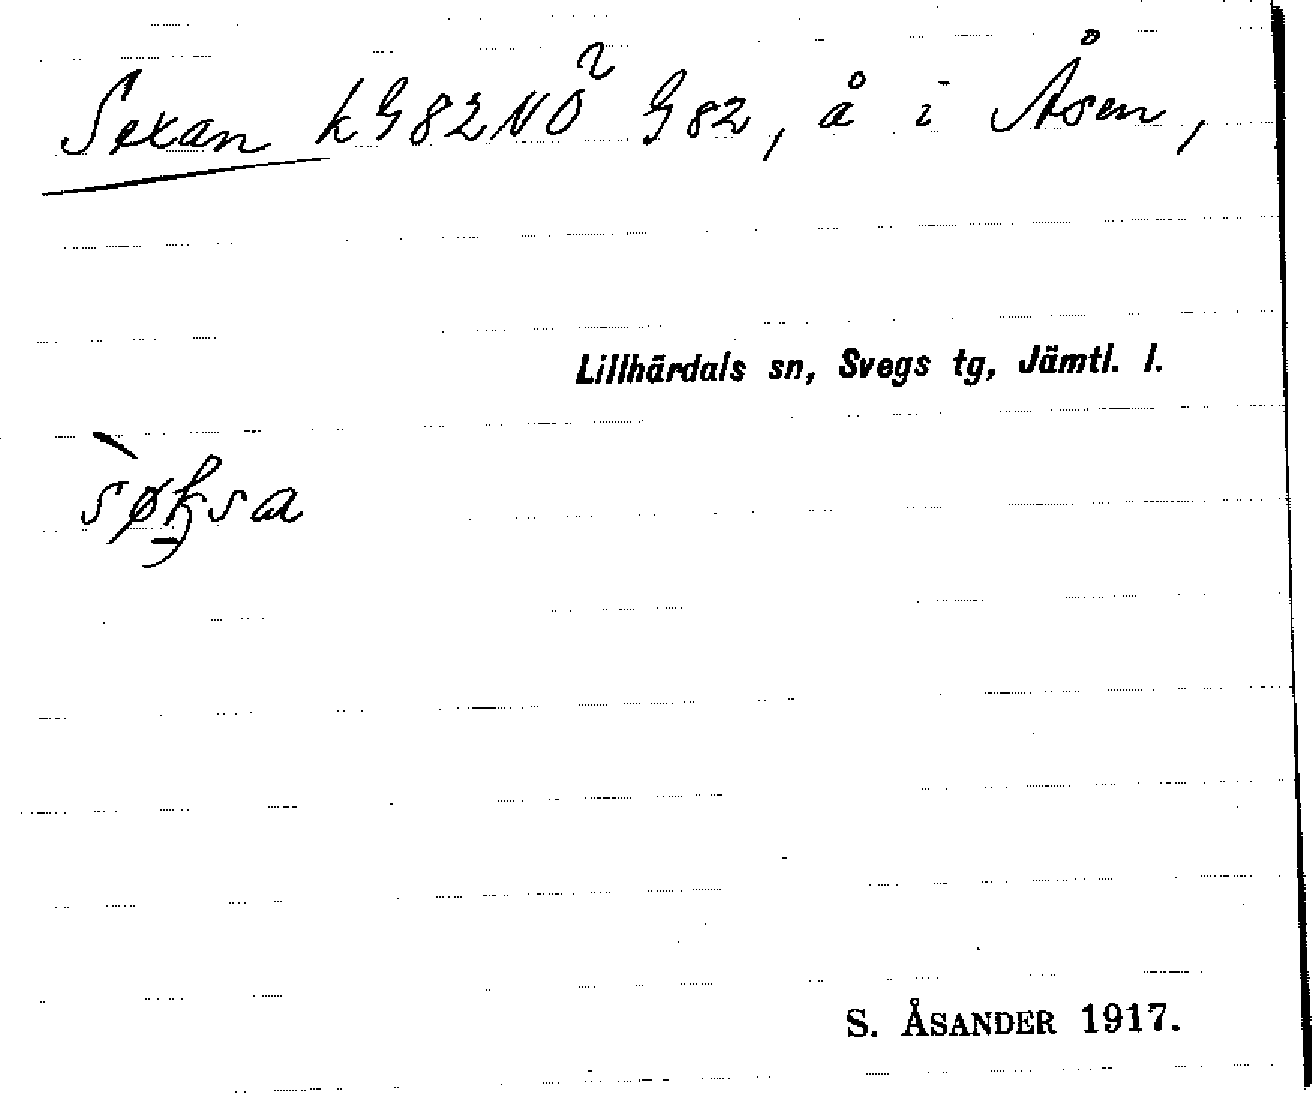 Sexan kG82NO² G82, å i Åsen,
Lillhärdals sn, Svegs tg, Jämtl. l.
sø̀ksa
S. ÅSANDER 1917.